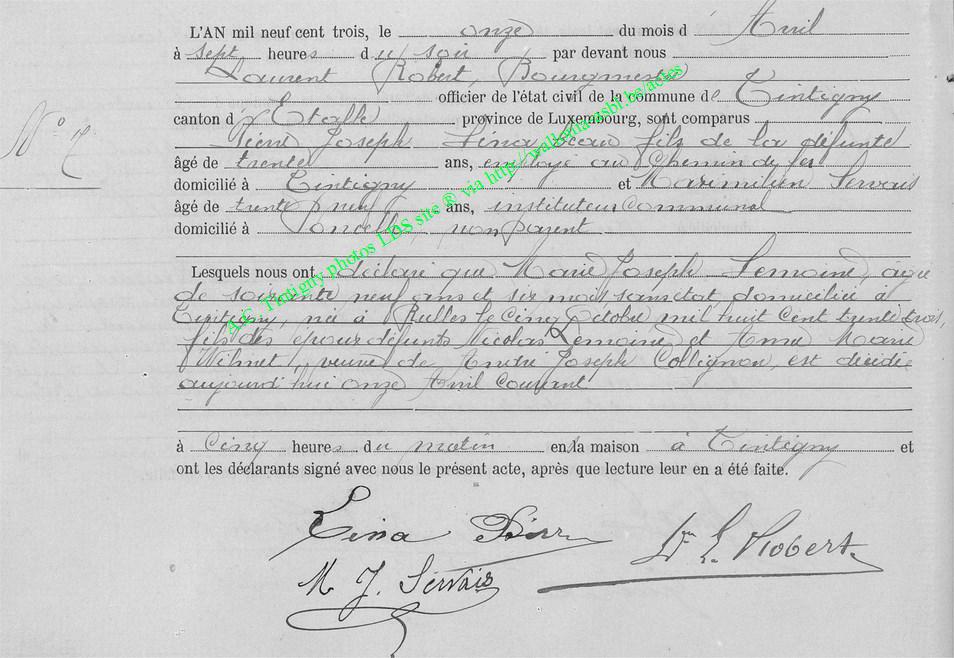 L'AN mil neuf cent trois, le onze du mois d'Avril
à sept heures du soir par devant nous
Laurent Robert, Bourgmestre
officier de l'état civil de la commune de Tintigny
canton d'Etalle province de Luxembourg, sont comparus
N°
Joseph beau fils de la défunte
âgé de trente ans, employé au Chemin de fer
domicilié à Tintigny et Maximilien Servais
âgé de trente neuf ans, instituteur communal
domicilié à non parent
Lesquels nous ont déclaré que Marie Joseph Lemoine, âgée
de soixante neuf ans et six mois sans état, domiciliée à
Tintigny, née à Rulles le cinq Octobre mil huit cent trente trois,
fils des époux défunts Nicolas Lemoine et Anne Marie
Wilmet, veuve de André Joseph Collignon, est décédée
aujourd'hui onze Avril courant
à cinq heures du matin en sa maison à Tintigny et
ont les déclarants signé avec nous le présent acte, après que lecture leur en a été faite.
L. Robert
M. J. Servais
A.C. Tintigny photos LDS site ® via http://wallonia-asbl.be/actes